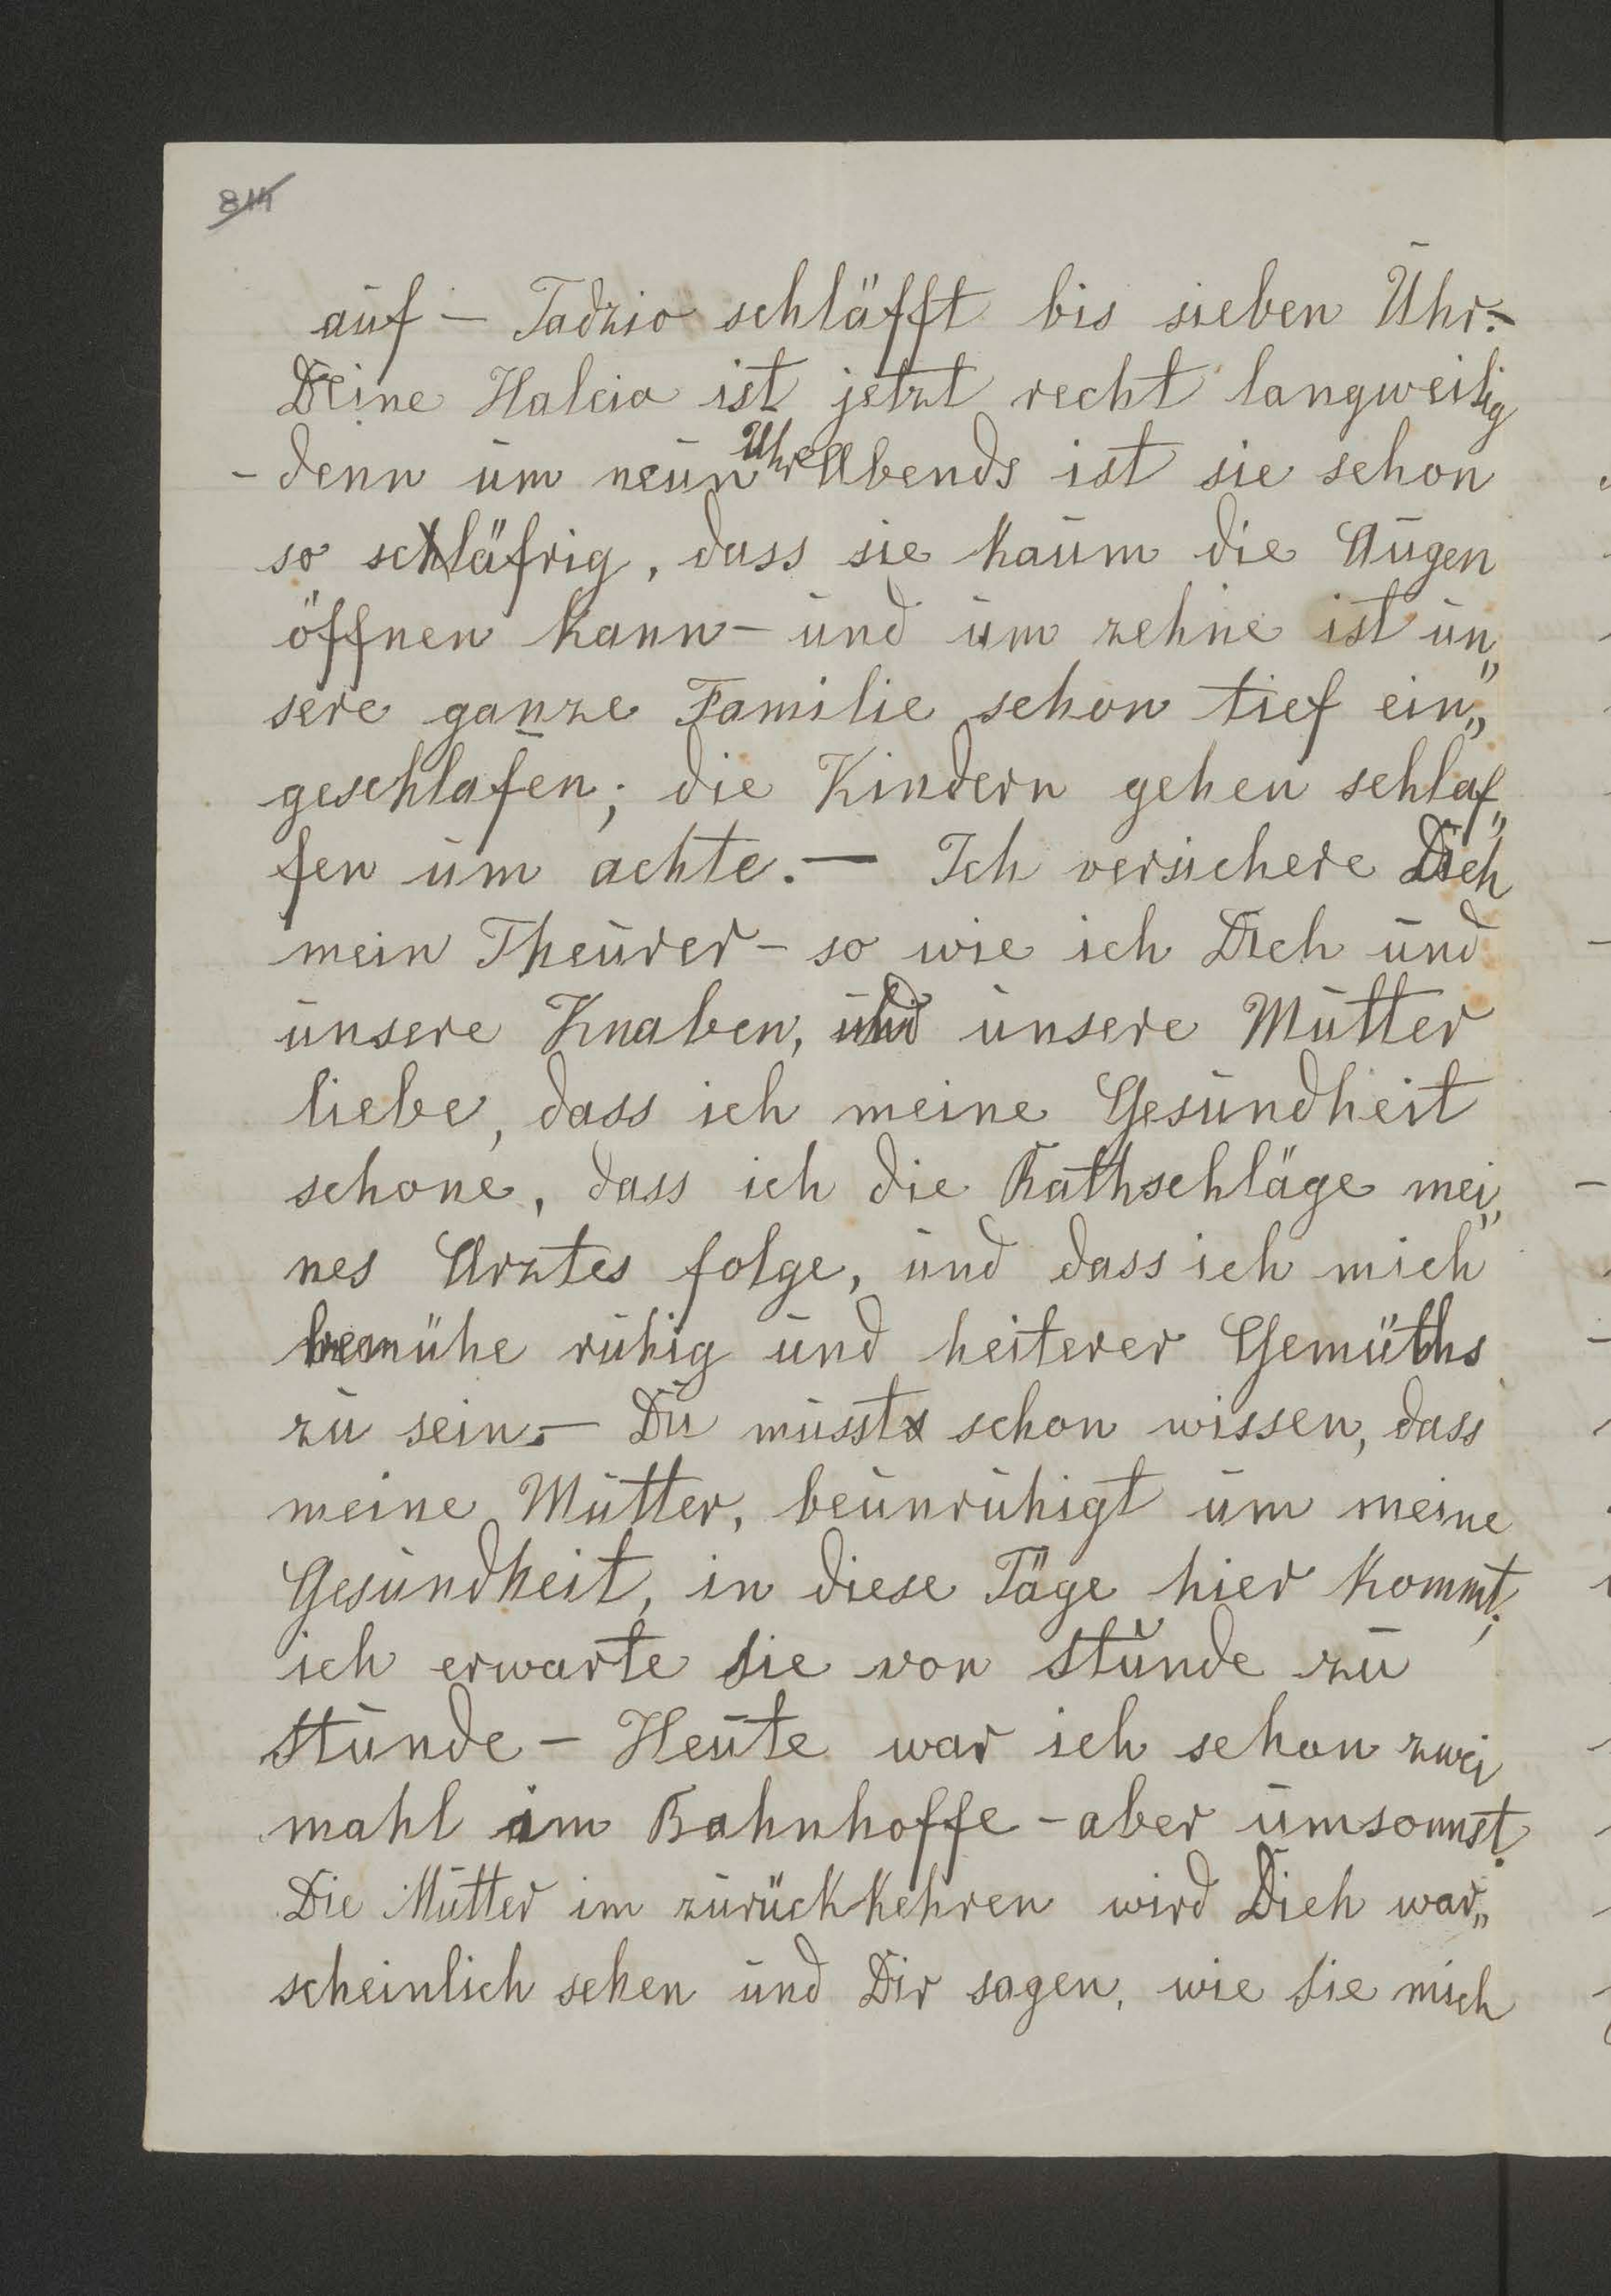 814
auf — Tadzio schläfft bis sieben Uhr. —
Deine Halcia ist jetzt recht langweilig
- denn um neun Uhr Abends ist sie schon
so schläfrig, dass sie kaum die Augen
öffnen kann — und um zehne ist un„
sere ganze Familie schon tief ein„
geschlafen; die Kindern gehen schlaf„
fen um achte. — Ich versichere Dich
mein Theurer — so wie ich Dich und
unsere Knaben, und unsere Mutter
liebe, dass ich meine Gesundheit
schone, dass ich die Rathschläge mei„
nes Arztes folge, und dass ich mich
bemühe ruhig und heiterer Gemüths
zu sein. — Du musst schon wissen, dass
meine Mutter, beunruhigt um meine
Gesundheit, in diese Täge hier kommt;
ich erwarte sie von Stunde zu
Stunde — Heute war ich schon zwei
mahl im Bahnhoffe — aber umsonnst.
Die Mutter im zurückkehren wird Dich war„
scheinlich sehen und Dir sagen, wie sie mich